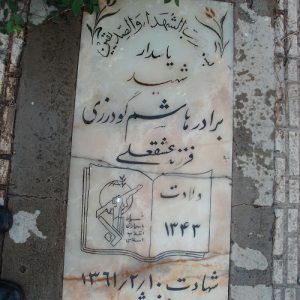 بسم رب الشهداء والصدیقین
پاسدار
شهید
برادر هاشم گودرزی
فرزند عشقعلی
ولادت
۱۳۴۳
شهادت ۱۳۶۱/۲/۱۰